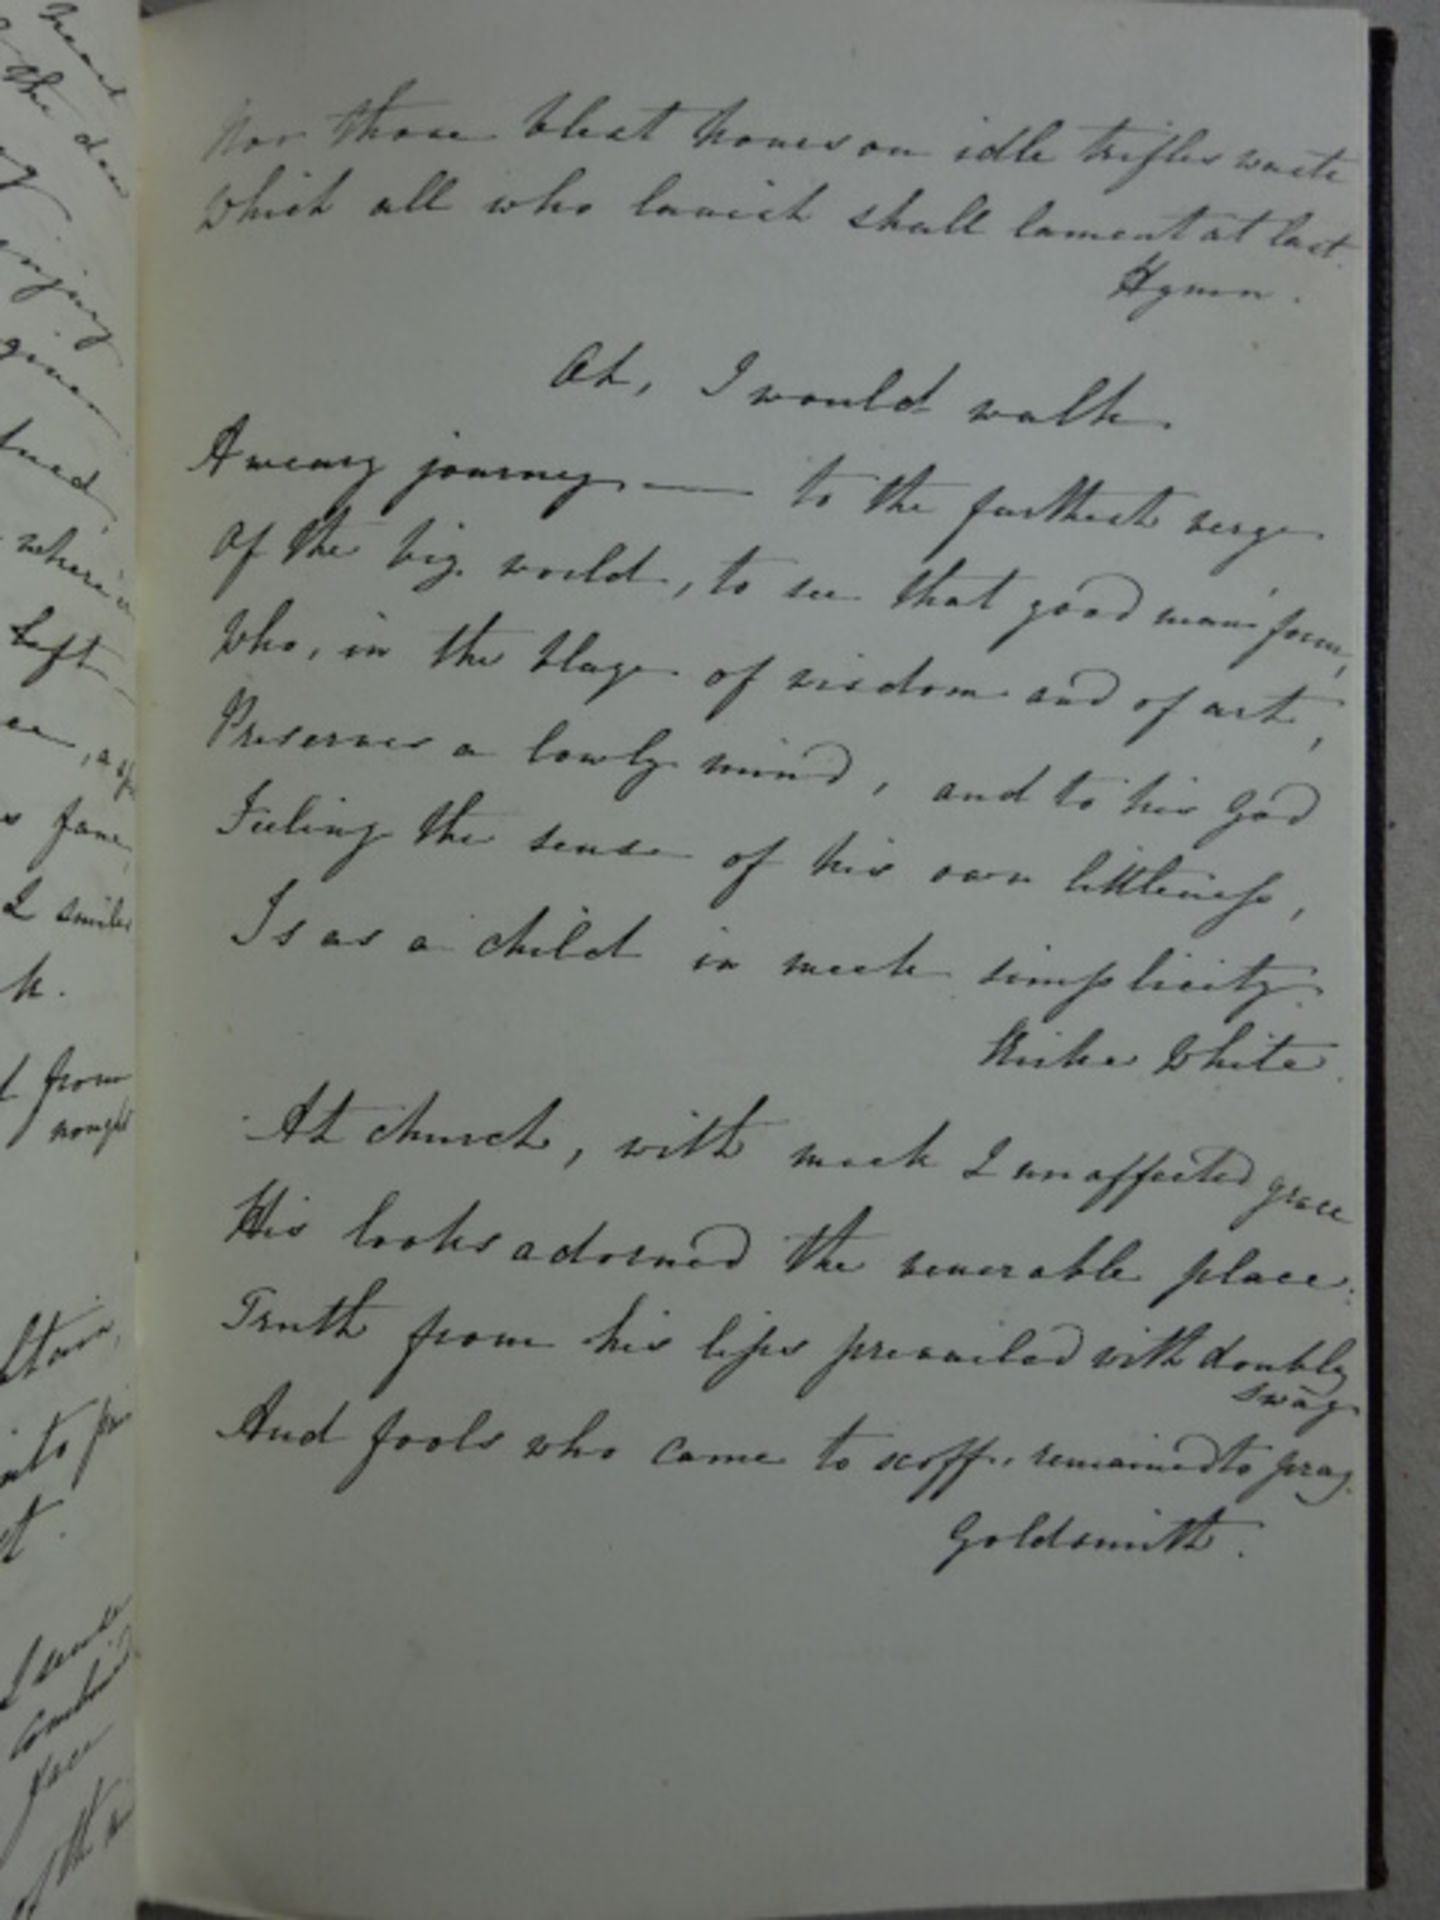 hear
the dear
joying
given
tued,
where'er
left
fane,
& smiles
k.
from
nought
Nor those blest hours on idle trifles waste
Which all who lavish shall lament at last.
Hymn.
Oh, I would walk
A weary journey — to the furthest verge
Of the big world, to see that good man's form,
Who, in the blaze of wisdom and of art,
Preserves a lowly mind, and to his God
Feeling the sense of his own littleness,
Is as a child in meek simplicity.
Kirke White.
At church, with meek & unaffected grace
His looks adorned the venerable place:
Truth from his lips prevailed with doubly
sway
And fools who came to scoff, remained to pray.
Goldsmith.